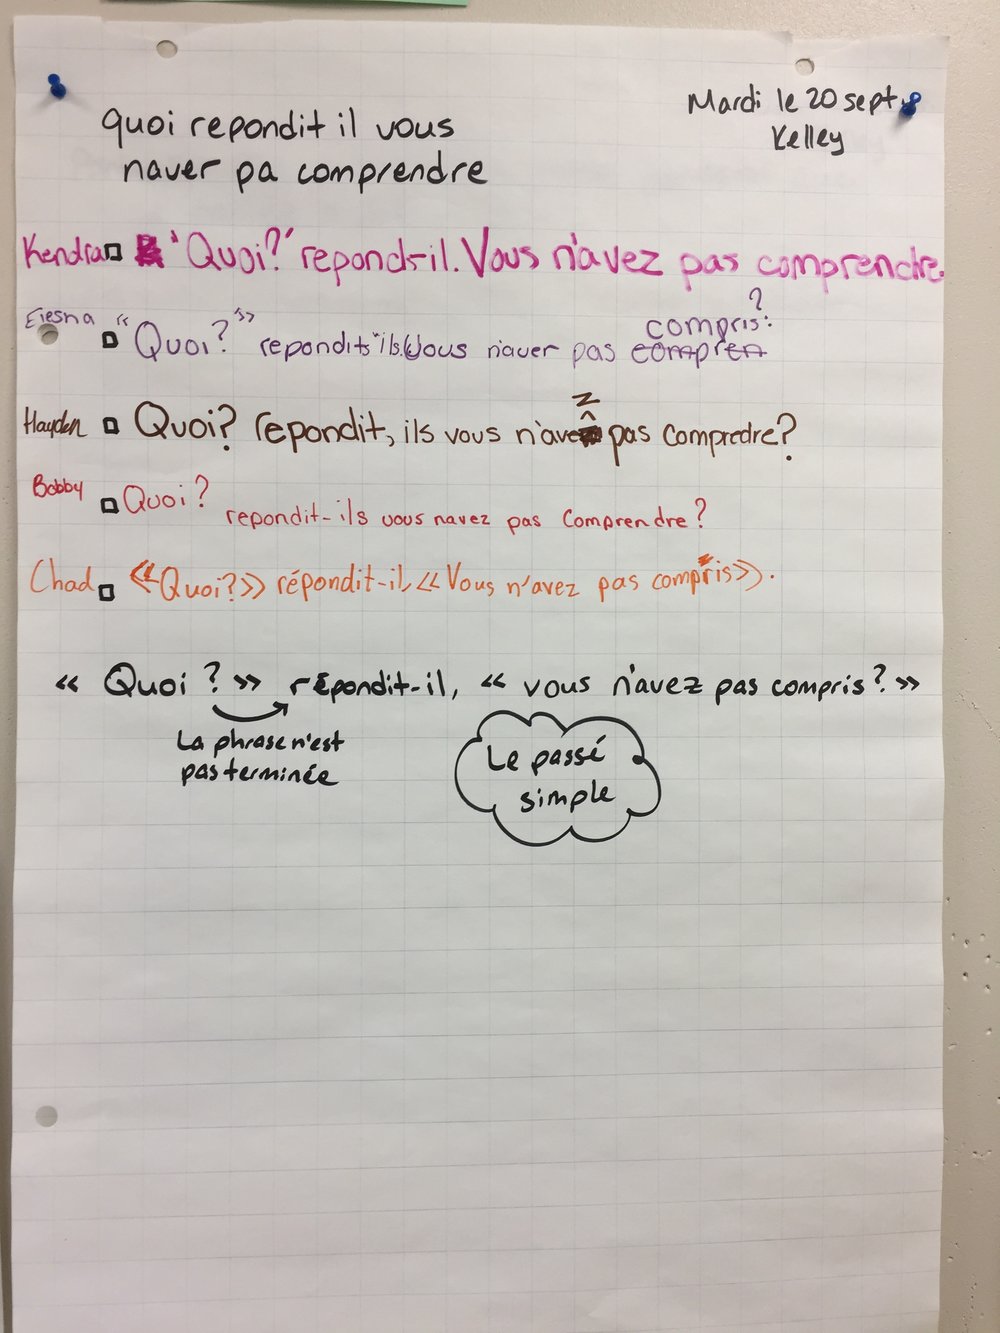 Mardi le 20 sept.
Kelley
quoi repondit il vous
naver pa comprendre
Kendra 'Quoi?' repond-il. Vous n'avez pas comprendre.
"Quoi?" repondits "ils. Vous n'aver pas compren compris?
Hayden Quoi? repondit, ils vous n'avez pas compredre?
Bobby Quoi? repondit-ils vous navez pas Comprendre?
Chad «Quoi?» répondit-il, «Vous n'avez pas compris».
« Quoi ? » répondit-il, « vous n'avez pas compris ? »
La phrase n'est
pas terminée
Le passé
simple